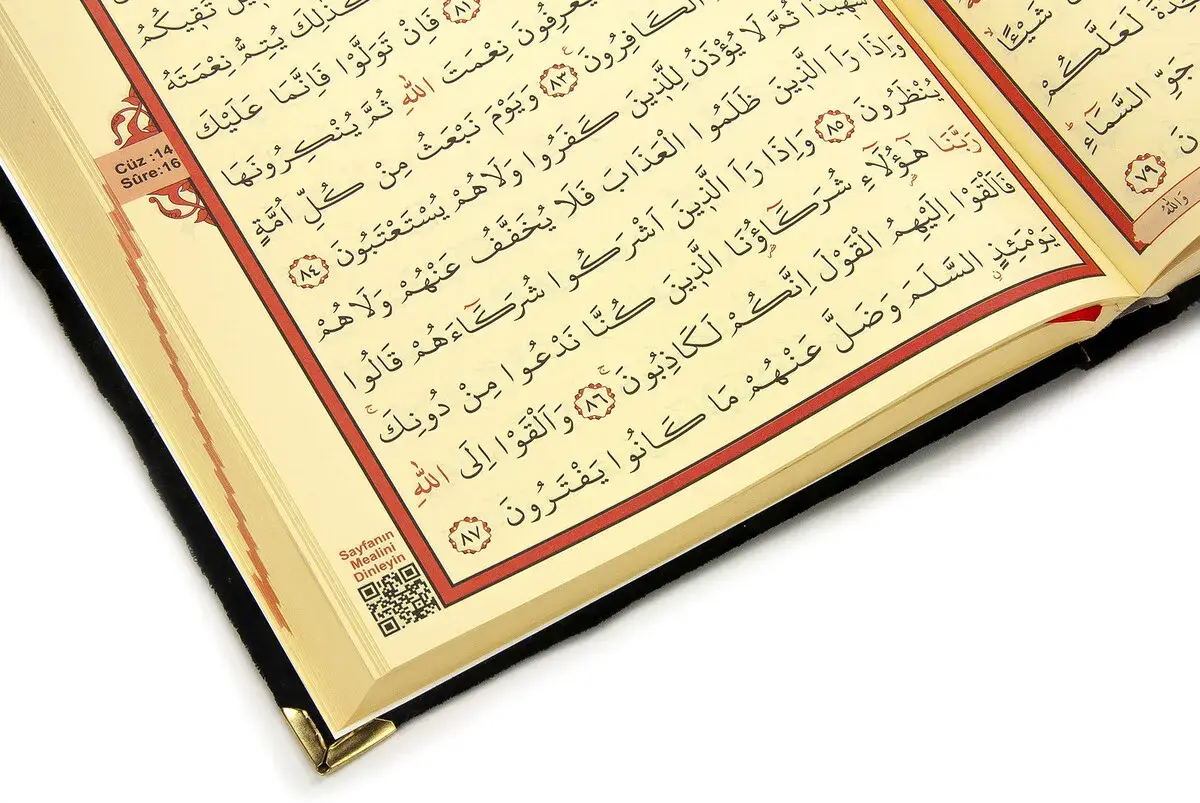 شَيْـًٔا
لَعَلَّكُمْ
جَوِّ السَّمَٓاءِ
٧٩
وَاللّٰهُ
تَقِيكُمْ
كَذٰلِكَ يُتِمُّ نِعْمَتَهُ
٨١ فَاِنْ تَوَلَّوْا فَاِنَّمَا عَلَيْكَ
يَعْرِفُونَ نِعْمَتَ اللّٰهِ ثُمَّ يُنْكِرُونَهَا
الْكَافِرُونَ ٨٣ وَيَوْمَ نَبْعَثُ مِنْ كُلِّ اُمَّةٍ
شَهِيدًا ثُمَّ لَا يُؤْذَنُ لِلَّذِينَ كَفَرُوا وَلَاهُمْ يُسْتَعْتَبُونَ ٨٤
وَاِذَا رَاَ الَّذِينَ ظَلَمُوا الْعَذَابَ فَلَا يُخَفَّفُ عَنْهُمْ وَلَاهُمْ
يُنْظَرُونَ ٨٥ وَاِذَا رَاَ الَّذِينَ اَشْرَكُوا شُرَكَٓاءَهُمْ قَالُوا
رَبَّنَا هٰٓؤُلَٓاءِ شُرَكَٓاؤُنَا الَّذِينَ كُنَّا نَدْعُوا مِنْ دُونِكَۚ
فَاَلْقَوْا اِلَيْهِمُ الْقَوْلَ اِنَّكُمْ لَكَاذِبُونَۚ ٨٦ وَاَلْقَوْا اِلَى اللّٰهِ
يَوْمَئِذٍ السَّلَمَ وَضَلَّ عَنْهُمْ مَا كَانُوا يَفْتَرُونَ ٨٧
Cüz :14
Sûre:16
Sayfanın
Mealini
Dinleyin